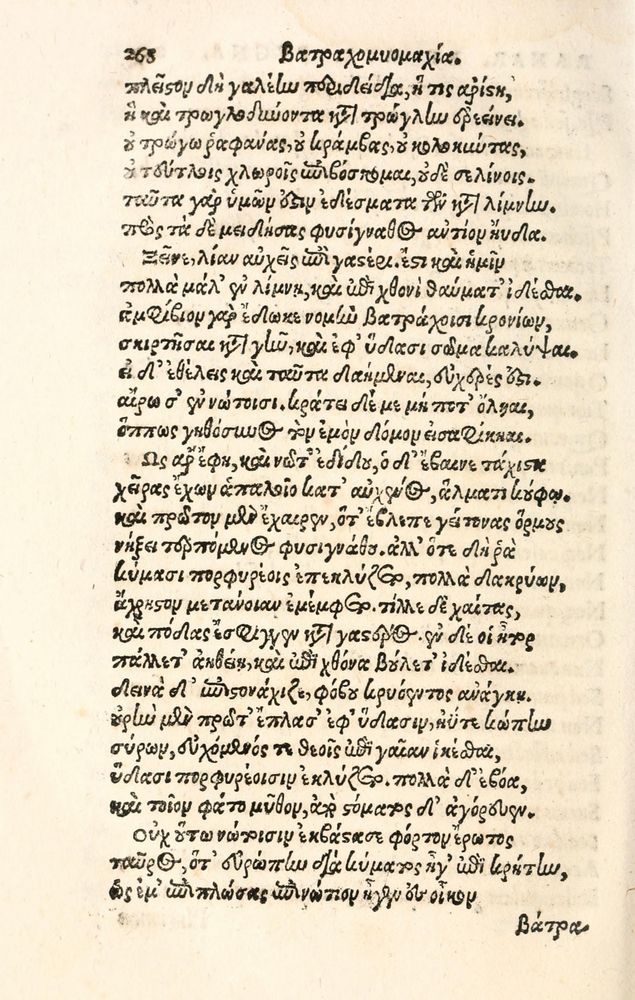 268 Βατραχομυομαχία.
πλεῖστον δὴ γαλέην περιδείδια, ἥ τις ἀρίστη,
ἣ καὶ τρωγλοδύνοντα κατὰ τρώγλην ἐρεείνει.
οὐ τρώγω ῥαφανάς, οὐ κράμβας, οὐ κολοκύντας,
οὐ τούτλοις χλωροῖς ἐπιβόσκομαι, οὐδὲ σελίνοις.
ταῦτα γὰρ ὑμῶν ἐστιν ἐδέσματα τῶν κατὰ λίμνην.
πρὸς τάδε μειδήσας φυσίγναθος ἀντίον ηὔδα.
Ξεῖνε, λίαν αὐχεῖς ἐπὶ γαστέρι. ἔστι καὶ ἡμῖν
πολλὰ μάλ' ἐν λίμνῃ, καὶ ἐπὶ χθονὶ θαύματ' ἰδέσθαι.
ἀμφίβιον γὰρ ἔδωκε νομὴν Βατράχοισι κρονίων,
σκιρτῆσαι κατὰ γῆν, καὶ ἐφ' ὕδασι σῶμα καλύψαι.
εἰ δ' ἐθέλεις καὶ ταῦτα δαήμεναι, εὐχερές ἐστι.
αἴρω σ' ἐν νώτοισι. κράτει δέ με μή ποτ' ὄληαι,
ὅππως γηθόσυνος τὸν ἐμὸν δόμον εἰσαφίκηαι.
Ὣς ἄρ' ἔφη, καὶ νῶτ' ἐδίδου, ὁ δ' ἔβαινε τάχιστα
χεῖρας ἔχων ἁπαλοῖο κατ' αὐχένος, ἅλματι κούφῳ.
καὶ πρῶτον μὲν ἔχαιρεν, ὅτ' ἔβλεπε γείτονας ὅρμους
νήξει τερπόμενος φυσιγνάθου. ἀλλ' ὅτε δή ῥα
κύμασι πορφυρέοις ἐπεκλύζετο, πολλὰ δακρύων,
ἄχρηστον μετάνοιαν ἐμέμφετο. τίλλε δὲ χαίτας,
καὶ πόδας ἔσφιγγεν κατὰ γαστέρος. ἐν δέ οἱ ἦτορ
πάλλετ' ἀηθείῃ, καὶ ἐπὶ χθόνα βούλετ' ἰδέσθαι.
δεινὰ δ' ἐπεστονάχιζε, φόβου κρυόεντος ἀνάγκῃ.
οὐρὴν μὲν πρῶτ' ἔπλασ' ἐφ' ὕδασιν, ἠΰτε κώπην
σύρων, εὐχόμενός τε θεοῖς ἐπὶ γαῖαν ἱκέσθαι,
ὕδασι πορφυρέοισιν ἐκλύζετο. πολλὰ δ' ἐβόα,
καὶ τοῖον φάτο μῦθον, ἀπὸ στόματός δ' ἀγόρευεν.
Οὐχ οὕτω νώτοισιν ἐκβάστασε φόρτον ἔρωτος
ταῦρος, ὅτ' εὐρώπην διὰ κύματος ἦγ' ἐπὶ κρήτην,
ὡς ἔμ' ἐπιπλώσας ἐπινώτιον ἦγεν ἐς οἶκον
βάτρα-